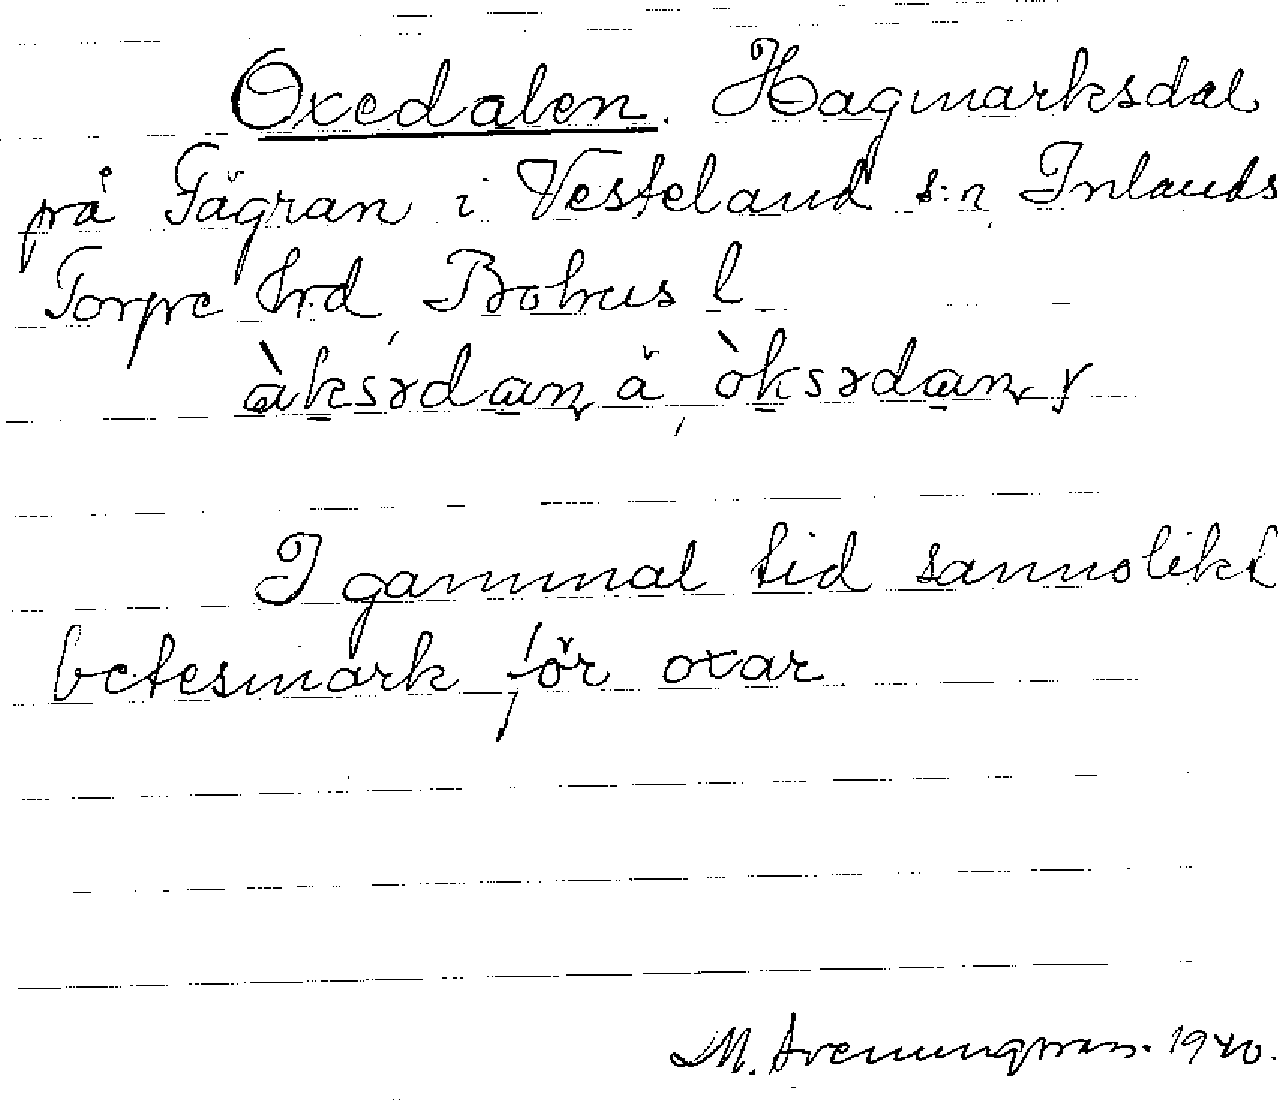 Oxedalen. Hagmarksdal
på Fägran i Vesterland s:n, Inlands
Torpe hrd, Bohus l
àksədan ä, òksədan
I gammal tid sannolikt
betesmark för oxar
M. 1940.